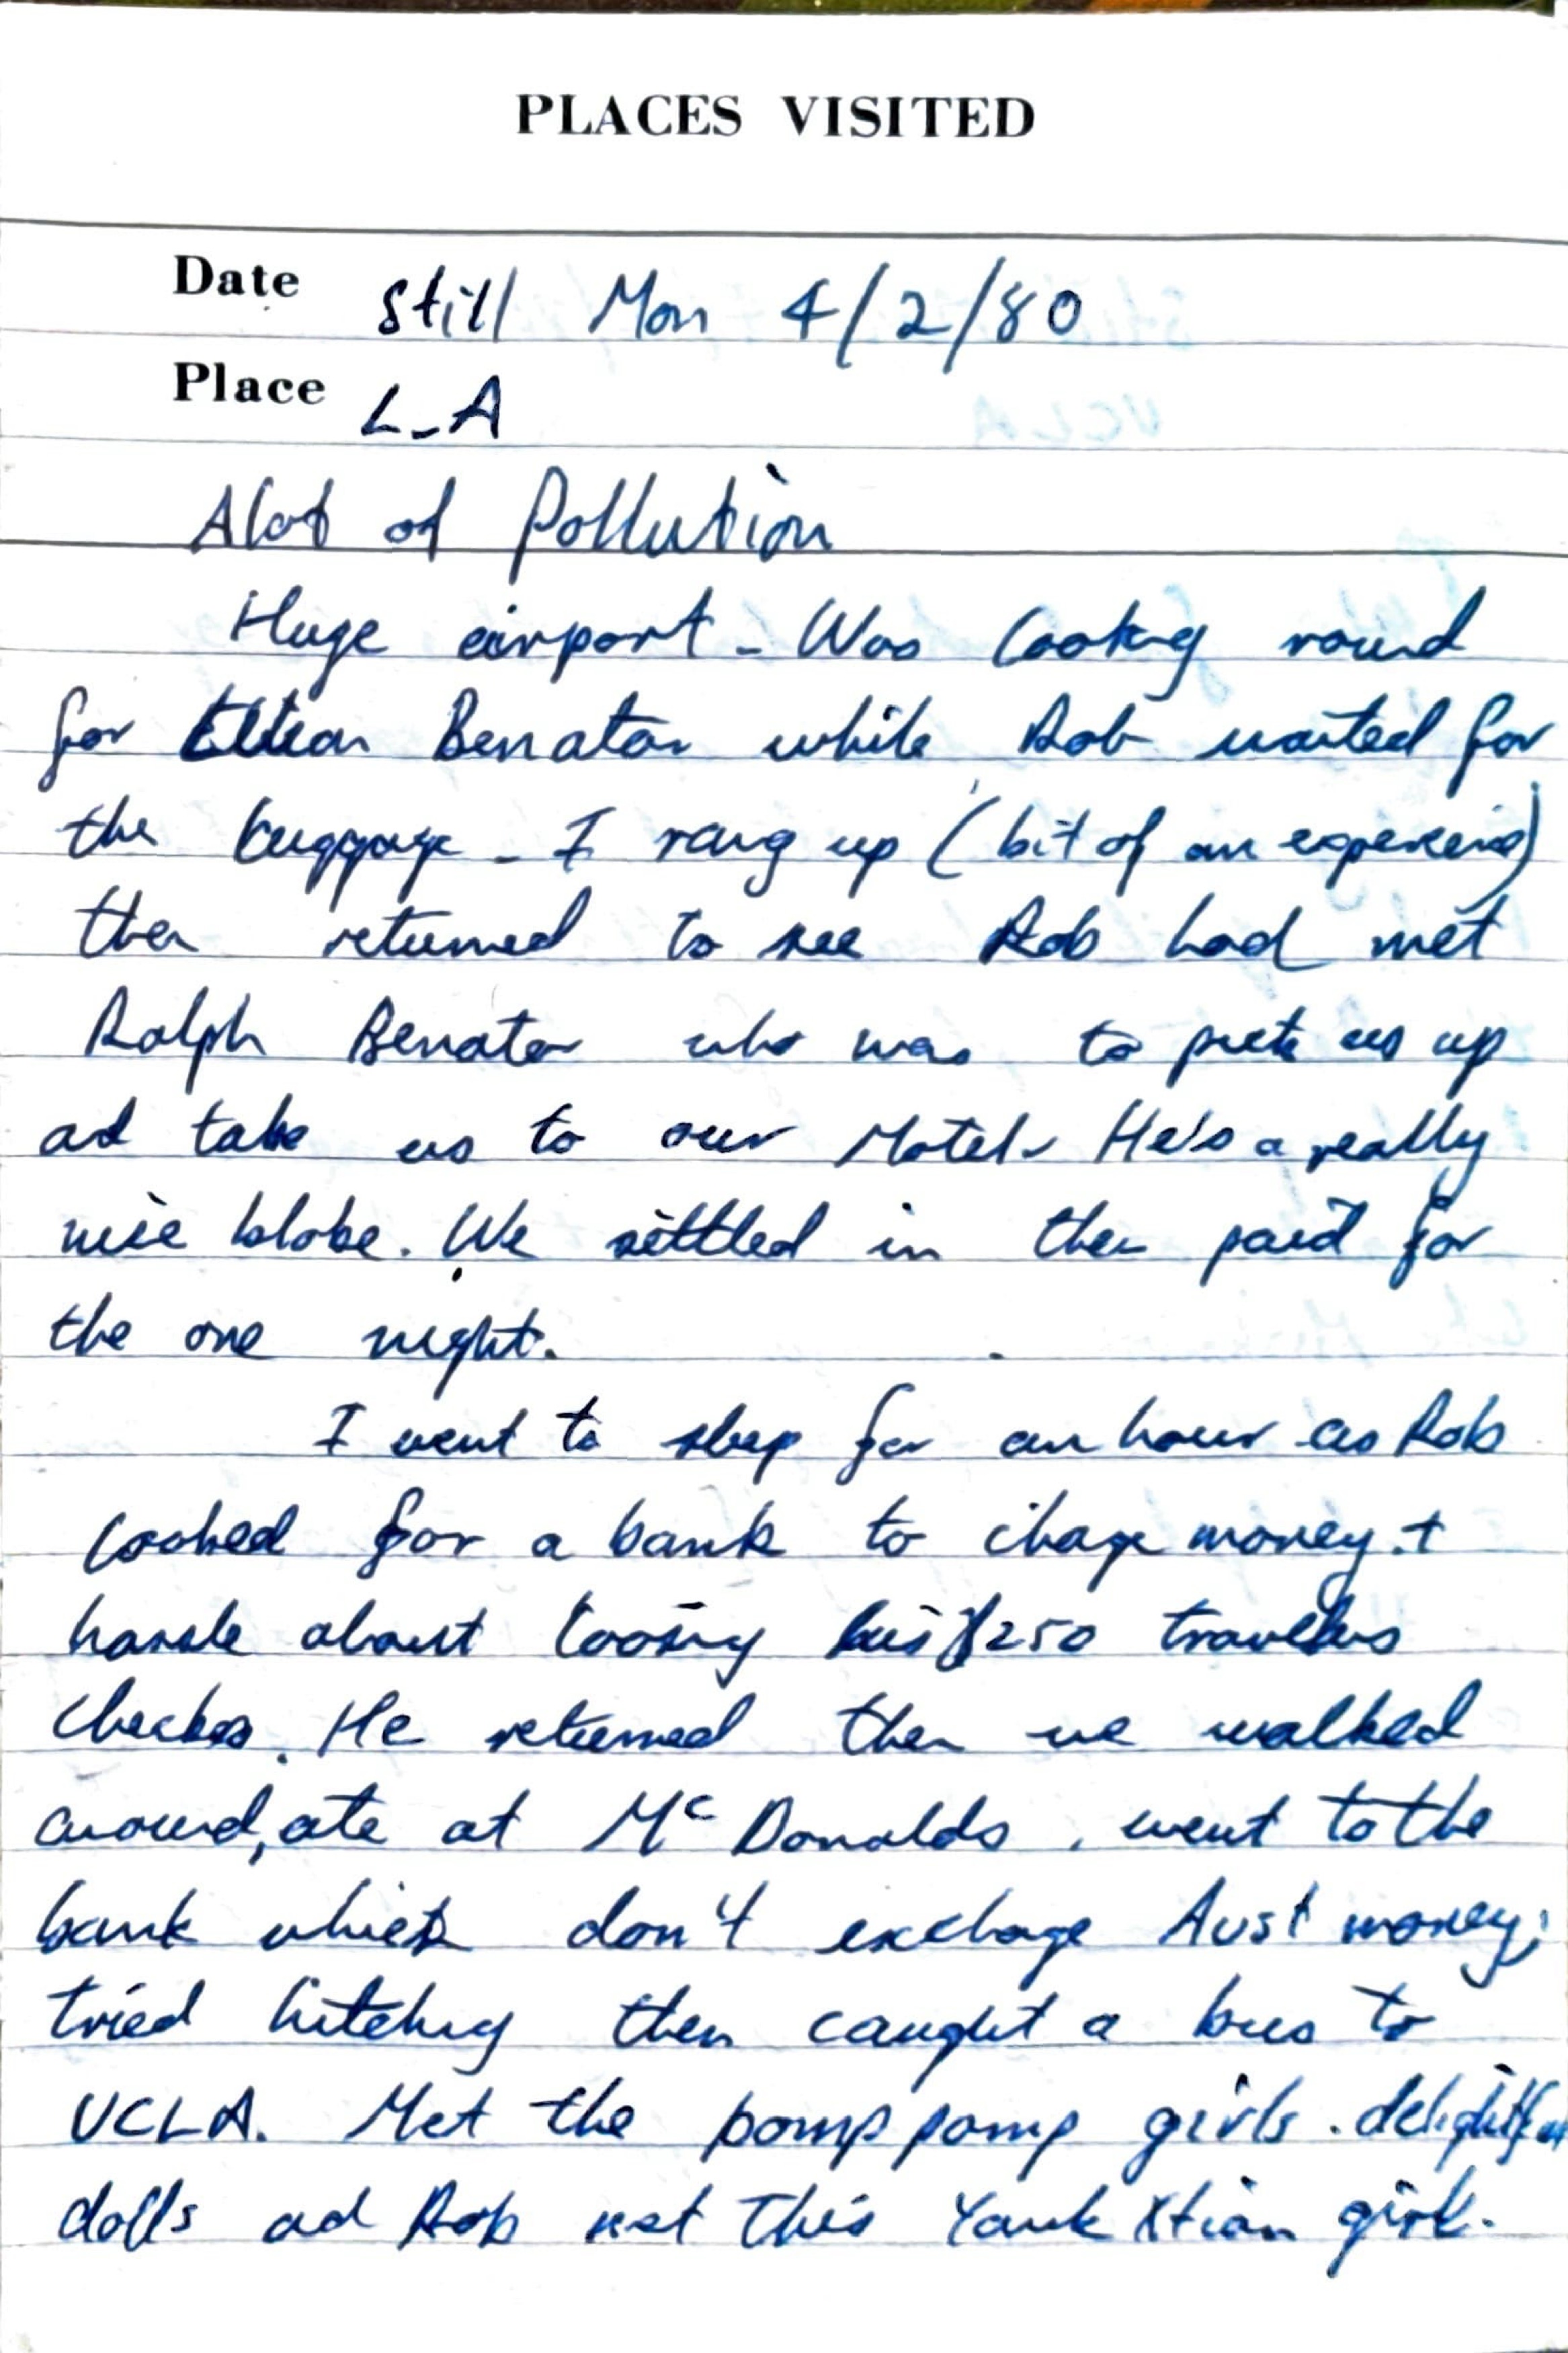 PLACES VISITED
Date Still Mon 4/2/80
Place L-A
Alot of Pollution
Huge airport - Was looking round
for Benator while Rob waited for
the luggage - I rang up (bit of an experience)
then returned to see Rob had met
Ralph Benator who was to pick us up
and take us to our Motel. He's a really
nice bloke. We settled in then paid for
the one night.
I went to sleep for an hour as Rob
looked for a bank to change money. +
hassle about loosing his $250 travellers
checks. He returned then we walked
around, ate at McDonalds, went to the
bank which don't exchange Aust money;
tried hitching then caught a bus to
UCLA. Met the pomp pomp girls. delightful
dolls and Rob met this Yank Xtian girl.